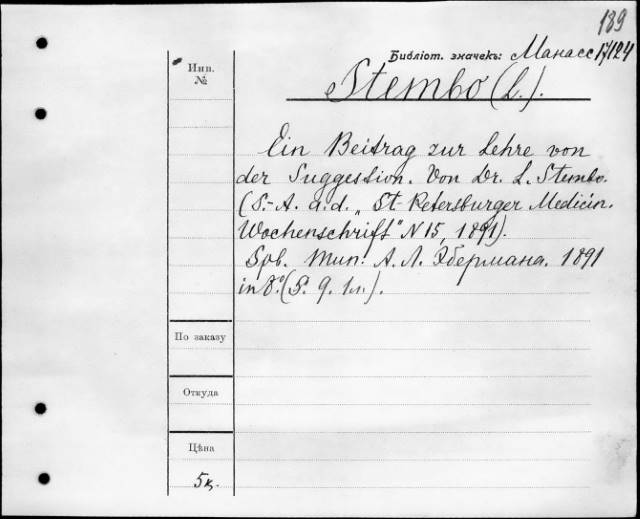 189
Библіот. значекъ: Манасс 17/124
Инв.
№
Stembo (L.).
Ein Beitrag zur Lehre von
der Suggestion. Von Dr. L. Stembo.
(S.-A. a. d. „St-Petersburger Medicin.
Wochenschrift" N 15, 1891).
Spb. Тип. А. Л. Эбермана. 1891
in 8.° (S. 9. 1 кл.).
По заказу
Откуда
Цѣна
5к.